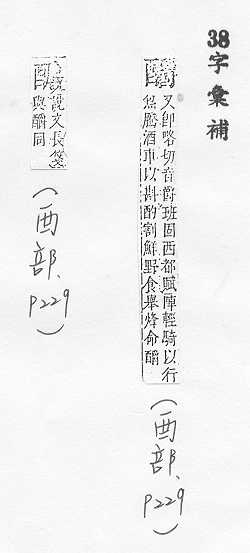 38字彙補
又卽略切音爵班固西都賦陣輕騎以行
炰騰酒車以斟酌割鮮野食舉烽命
(酉部、P229)
說文長箋
與 同
(酉部、P229)